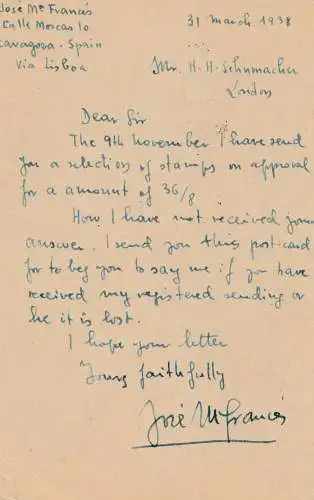 José Mª Francés
Calle Moscas 10
Zaragoza - Spain
Via Lisboa
31 March 1938
Mr. H. H. Schumacher
London
Dear Sir
The 9th november I have send
you a selection of stamps on approval
for a amount of 36/8
How I have not received your
answer, I send you this post-card
for to beg you to say me if you have
received my registered sending or
he it is lost.
I hope your letter
Yours faithfully
José Mª Francés